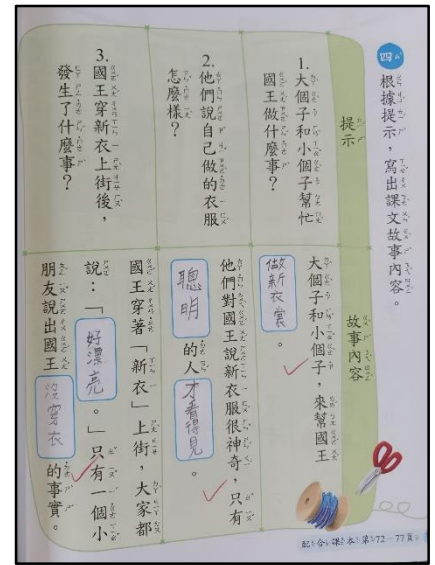 四、根據提示，寫出課文故事內容。
提示
故事內容
1.大個子和小個子幫忙
國王做什麼事？
大個子和小個子，來幫國王
做新衣裳。
2.他們說自己做的衣服
怎麼樣？
他們對國王說新衣服很神奇，只有
聰明的人才看得見。
3.國王穿新衣上街後，
發生了什麼事？
國王穿著「新衣」上街，大家都
說：「好漂亮。」只有一個小
朋友說出國王沒穿衣的事實。
配合課本第72－77頁